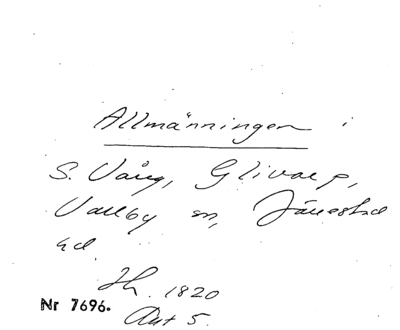 Allmänningen i
S. Vång, Glivarp,
Vallby sn, Järrestad
hd.
1820
Nr 7696.
Akt 5.